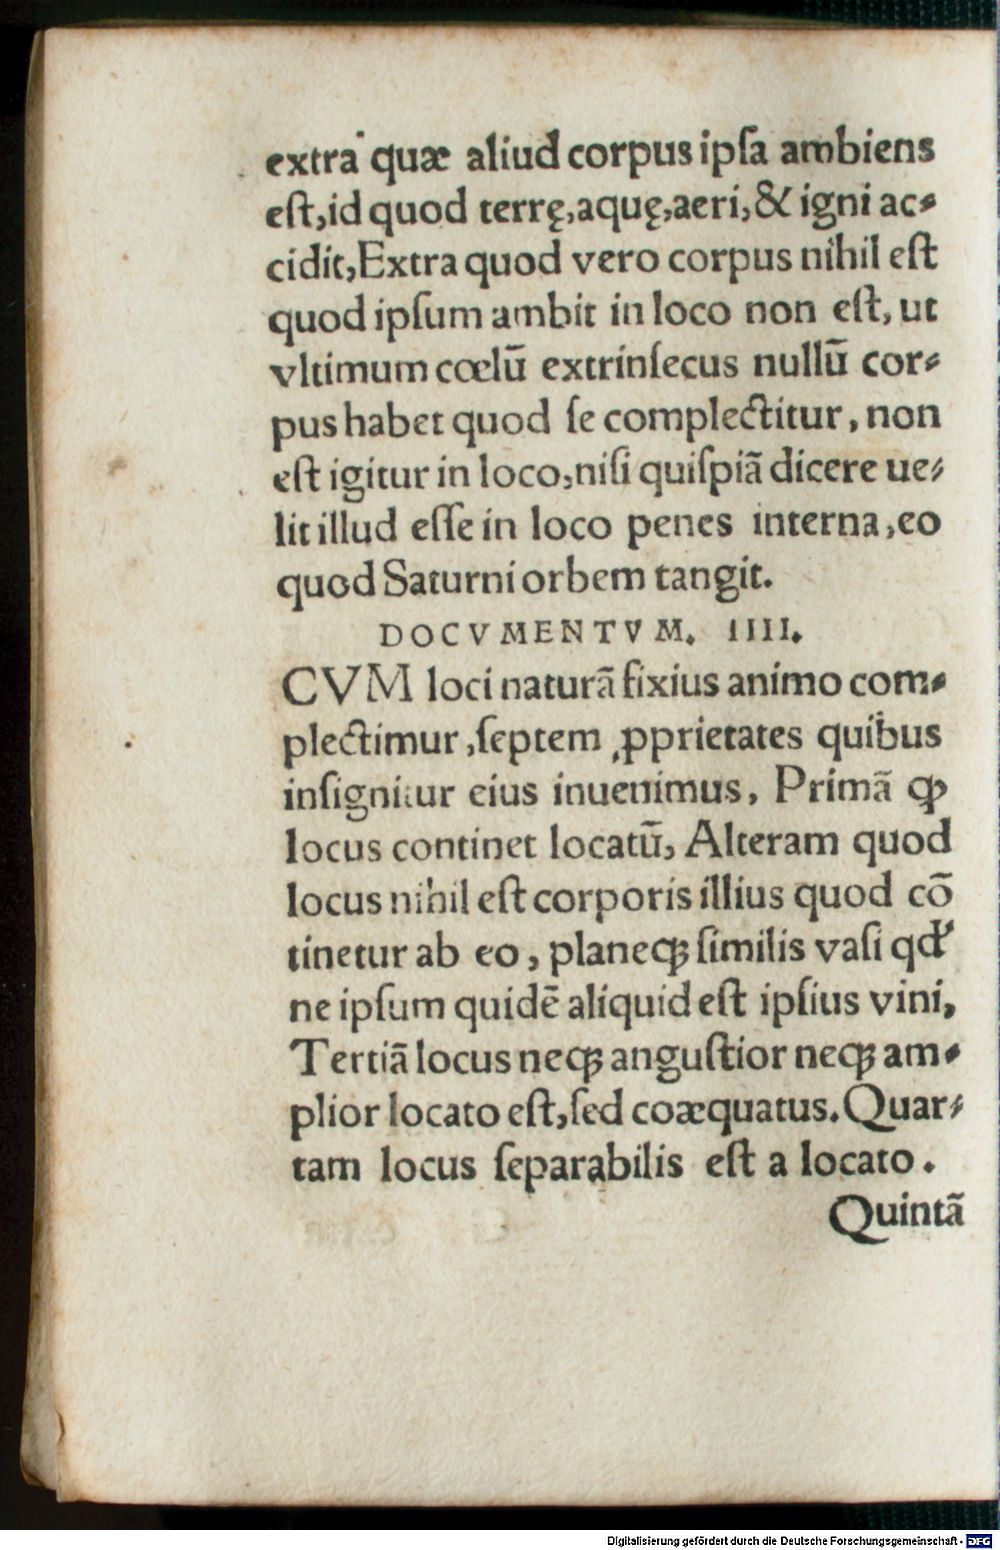 extra quæ aliud corpus ipſa ambiens
eſt, id quod terrę, aquę, aeri, & igni ac-
cidit, Extra quod vero corpus nihil eſt
quod ipſum ambit in loco non eſt, ut
vltimum cœlū extrinſecus nullū cor-
pus habet quod ſe complectitur, non
eſt igitur in loco, niſi quiſpiā dicere ue-
lit illud eſſe in loco penes interna, eo
quod Saturni orbem tangit.
DOCVMENTVM. IIII.
CVM loci naturā fixius animo com-
plectimur, ſeptem ꝓprietates quibus
inſignitur eius inuenimus, Primā ꝙ
locus continet locatū, Alteram quod
locus nihil eſt corporis illius quod cō
tinetur ab eo, planeqꝫ ſimilis vaſi qđ
ne ipſum quidē aliquid eſt ipſius vini,
Tertiā locus neqꝫ anguſtior neqꝫ am-
plior locato eſt, ſed coæquatus. Quar-
tam locus ſeparabilis eſt a locato.
Quintā
Digitalisierung gefördert durch die Deutsche Forschungsgemeinschaft - DFG